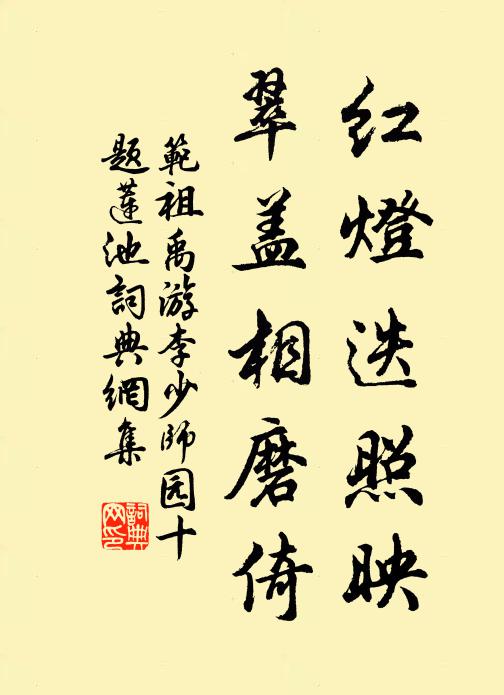 红燈迭照映
翠盖相磨倚
範祖禹游李少师园十
题蓮池詞典網集
詞典
网印